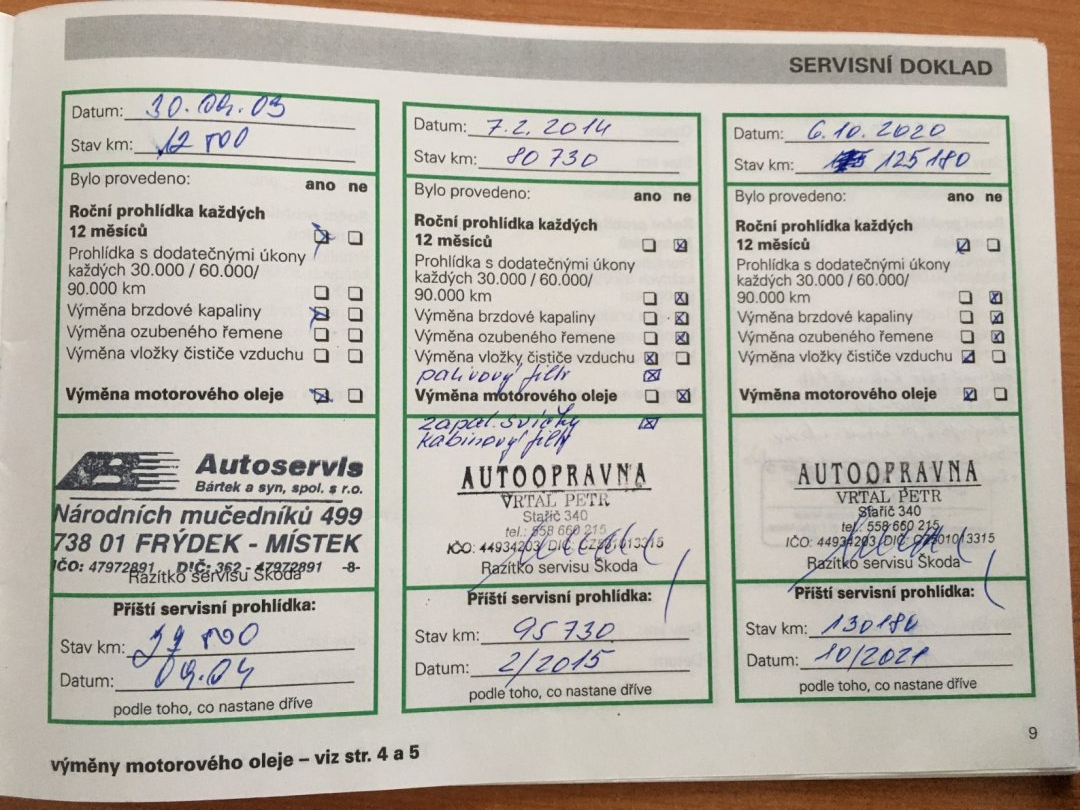 SERVISNÍ DOKLAD
Datum: 30.09.03
Stav km: 12 800
Bylo provedeno: ano ne
Roční prohlídka každých
12 měsíců
Prohlídka s dodatečnými úkony
každých 30.000 / 60.000/
90.000 km
Výměna brzdové kapaliny
Výměna ozubeného řemene
Výměna vložky čističe vzduchu
Výměna motorového oleje
AB Autoservis
Bártek a syn, spol. s r.o.
Národních mučedníků 499
738 01 FRÝDEK - MÍSTEK
IČO: 47972891 DIČ: 362 - 47972891 -8-
Razítko servisu Škoda
Příští servisní prohlídka:
Stav km:
Datum: 09.04
podle toho, co nastane dříve
Datum: 7.2. 2014
Stav km: 80 730
Bylo provedeno: ano ne
Roční prohlídka každých
12 měsíců
Prohlídka s dodatečnými úkony
každých 30.000 / 60.000/
90.000 km
Výměna brzdové kapaliny
Výměna ozubeného řemene
Výměna vložky čističe vzduchu
palivový filtr
Výměna motorového oleje
zapal. svíčky
kabinový filtr
AUTOOPRAVNA
VRTAL PETR
Staříč 340
tel.: 558 660 215
IČO: 44934203 DIČ: CZ501013315
Razítko servisu Škoda
Příští servisní prohlídka:
Stav km: 95 730
Datum: 2/2015
podle toho, co nastane dříve
Datum: 6.10. 2020
Stav km: 125 180
Bylo provedeno: ano ne
Roční prohlídka každých
12 měsíců
Prohlídka s dodatečnými úkony
každých 30.000 / 60.000/
90.000 km
Výměna brzdové kapaliny
Výměna ozubeného řemene
Výměna vložky čističe vzduchu
Výměna motorového oleje
AUTOOPRAVNA
VRTAL PETR
Staříč 340
tel.: 558 660 215
IČO: 44934203 DIČ: CZ501013315
Razítko servisu Škoda
Příští servisní prohlídka:
Stav km: 130180
Datum: 10/2021
podle toho, co nastane dříve
výměny motorového oleje – viz str. 4 a 5
9